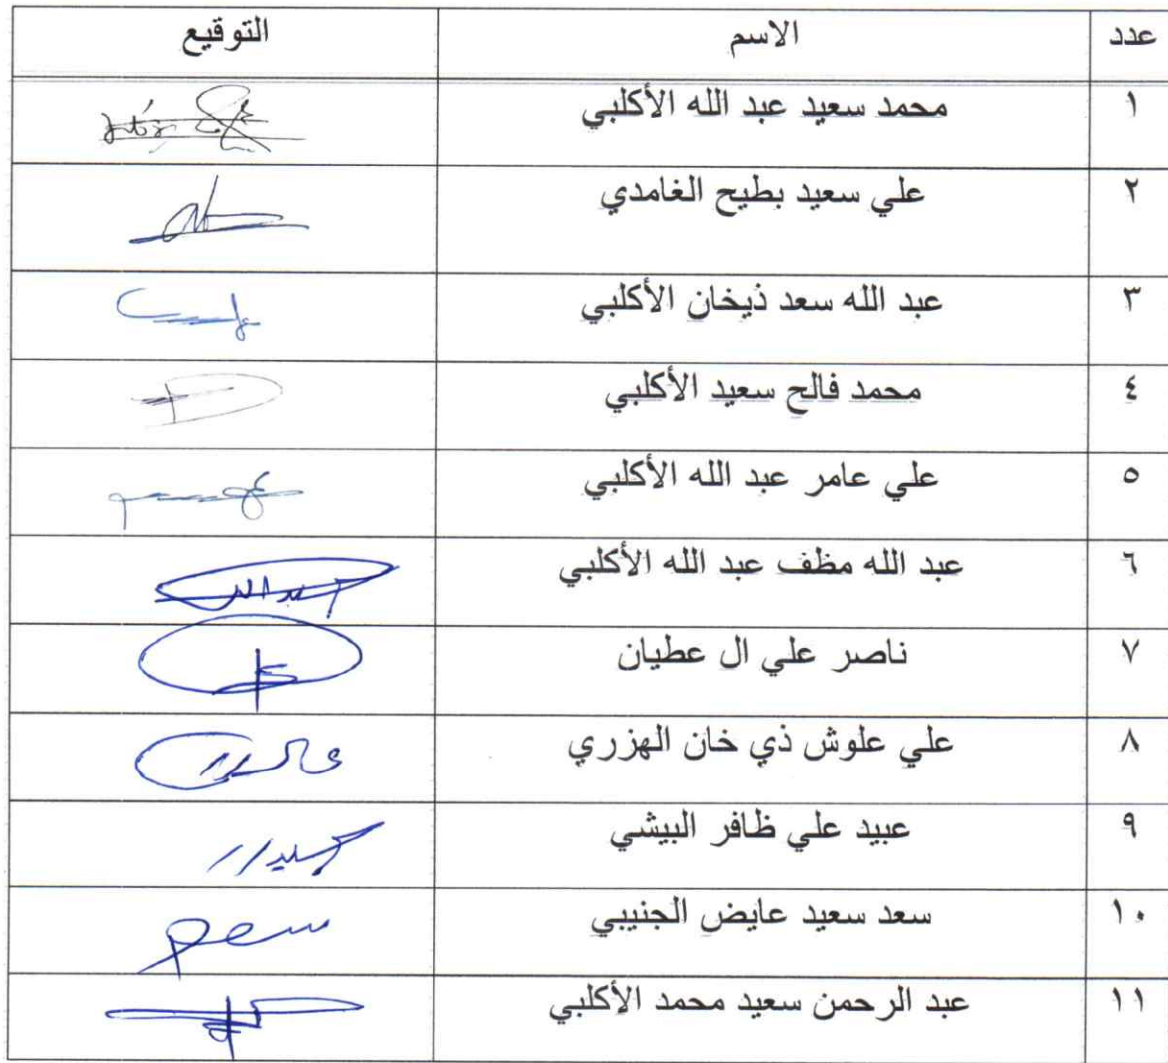 عدد الاسم التوقيع
١ محمد سعيد عبد الله الأكلبي
٢ علي سعيد بطيح الغامدي
٣ عبد الله سعد ذيخان الأكلبي
٤ محمد فالح سعيد الأكلبي
٥ علي عامر عبد الله الأكلبي
٦ عبد الله مظف عبد الله الأكلبي
٧ ناصر علي ال عطيان
٨ علي علوش ذي خان الهزري
٩ عبيد علي ظافر البيشي
١٠ سعد سعيد عايض الجنيبي
١١ عبد الرحمن سعيد محمد الأكلبي